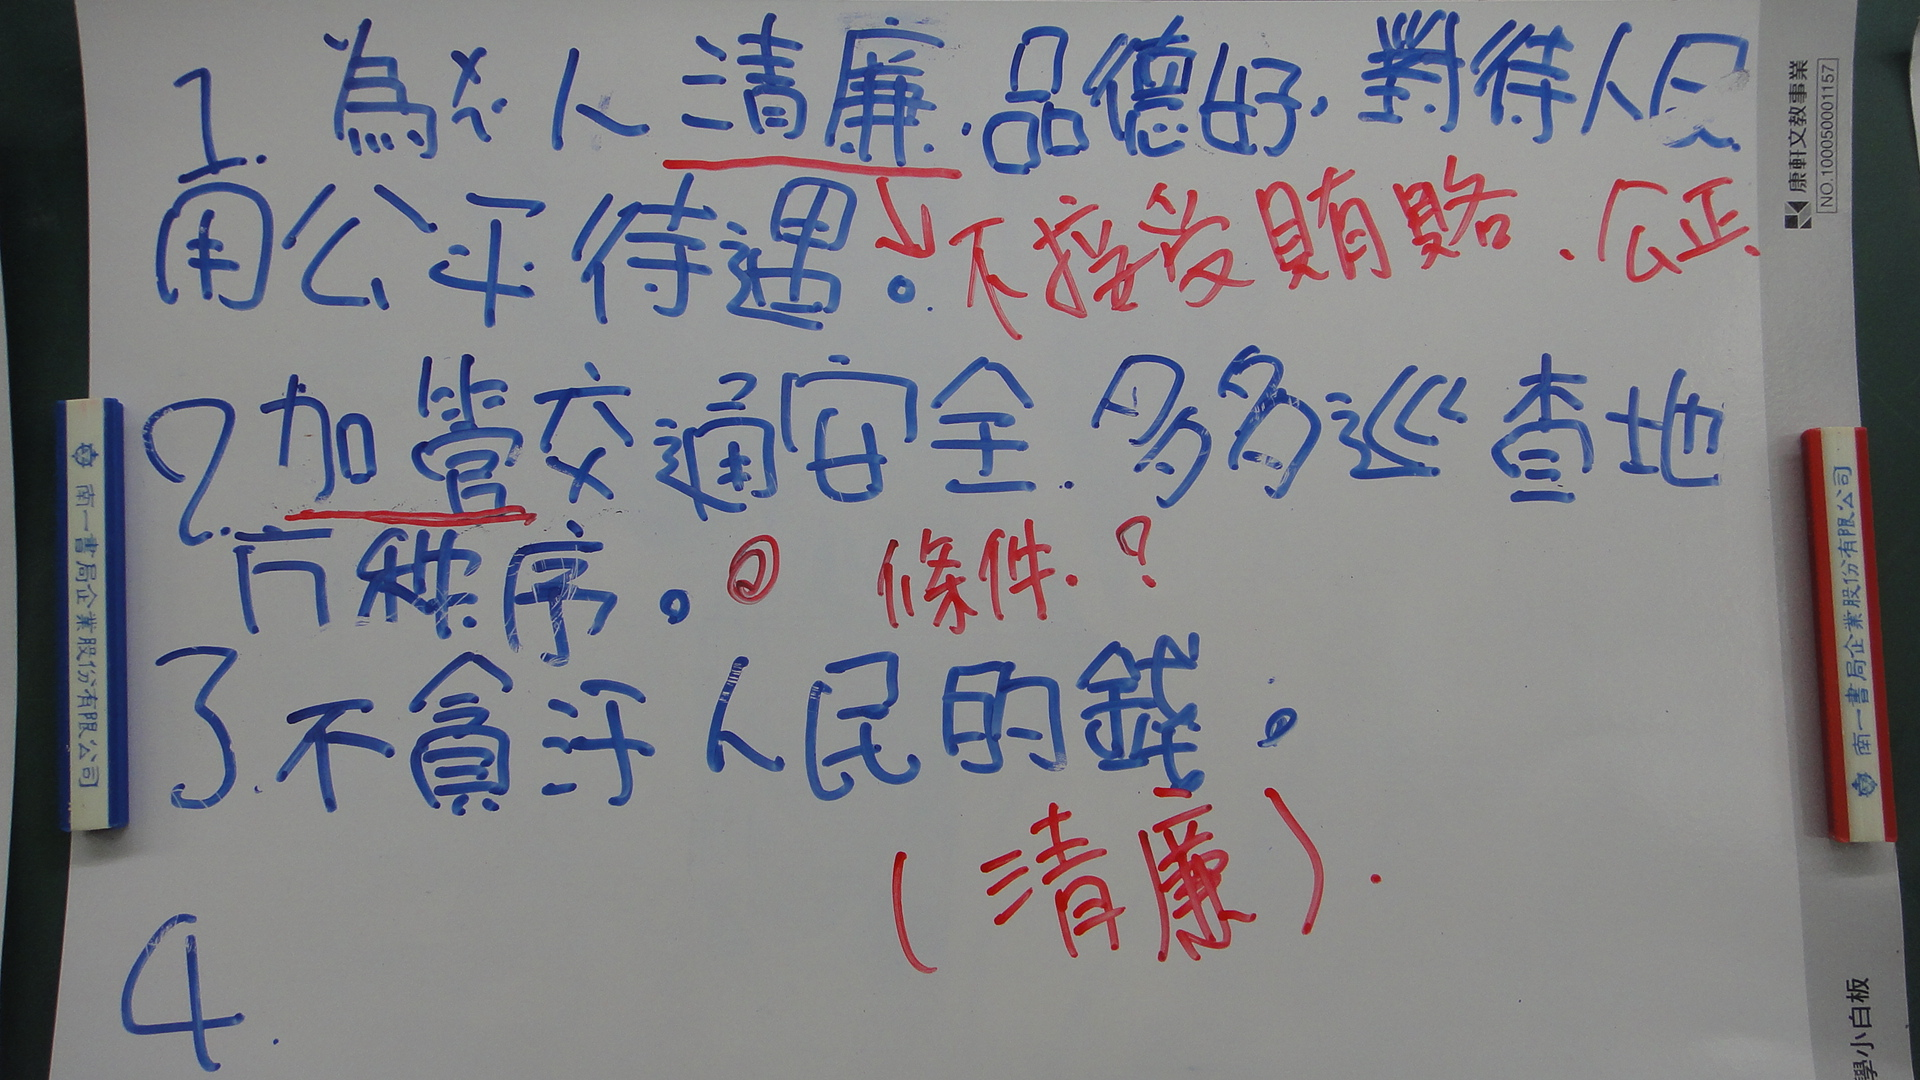 1. 為人清廉.品德好,對待人民
用公平待遇。不接受賄賂.公正.
2.加管交通安全.多多巡查地
方秩序。 條件.?
3.不貪汙人民的錢。
(清廉).
4.
康軒文教事業
NO.100050001157
南一書局企業股份有限公司
南一書局企業股份有限公司
學小白板